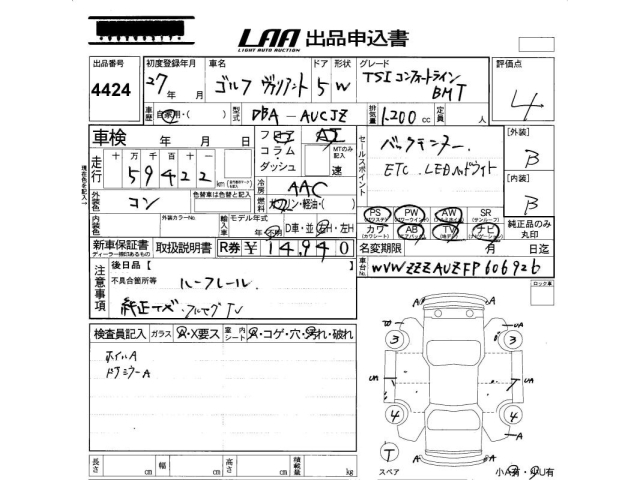 LAA 出品申込書
LIGHT AUTO AUCTION
出品番号 初度登録年月 車名 ドア 形状 グレード 評価点
4424 27年 月 ゴルフ ヴァリアント 5 W TSI コンフォートライン BMT 4
車歴 自家用・( ) 型式 DBA-AUCJZ 排気量 1200 cc 定員 人
車検 年 月 日 フロア AT セールスポイント バックモニター [外装]
コラム・ MTのみ記入 B
走行 十万千百十一 59422 km ダッシュ 速 ETC. LEDヘッドライト
冷房 AAC [内装]
外装色 コン 色替車は色替と記入 燃料 ガソリン・軽油・( ) B
PS PW AW SR
(パワステ) (パワーウインド) (サンルーフ) 純正品のみ丸印
内装色 外装カラーNo. 輸入車 モデル年式 年 不明 D車・並 左H・右H カワ AB TV ナビ
(カワシート) (エアバック)
新車保証書 取扱説明書 R券 ¥ 14,940 名変期限 有 日迄
ディーラー捺印あるもの
車台No. WVWZZZAUZFP606926
注意事項 後日品【 ロック車
不具合箇所等 ルーフレール.
純正ナビ.フルセグTV
検査員記入 ガラス A・X要ス 室内シート A・コゲ・穴・汚れ・破れ
ホイルA
ドアミラーA
A A
W UA
3 3
UA UA
4 4
A
T A A
スペア 小A有・小U有
長さ cm 幅 cm 高さ cm 積載量 kg